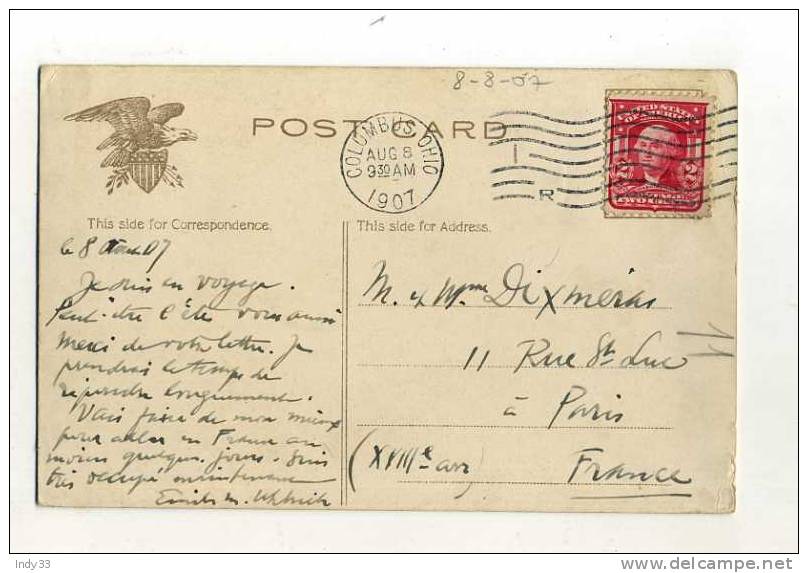 8-8-07
POST CARD
COLUMBUS, OHIO
AUG 8
9 30 AM
1907
R
UNITED STATES
OF AMERICA
2 2
TWO CENTS
This side for Correspondence.
This side for Address.
le 8 Août 07
Je suis en voyage.
Peut-être l'êtes vous aussi
Merci de votre lettre. Je
prendrai le temps de
répondre longuement.
Vais faire de mon mieux
pour aller en France au
moins quelques jours. Suis
très occupé maintenant
M. & Mme Dixmérias
11 Rue St. Luc
à Paris
(XVIIIe arr)
France
Indy33
delcampe.net